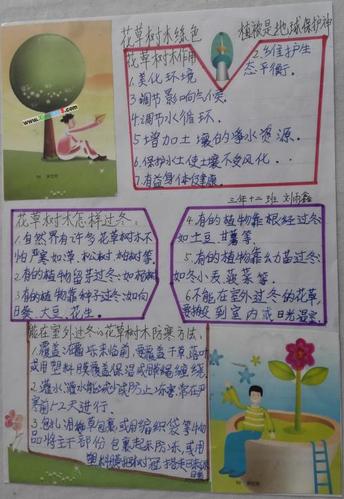 花草树木绿色
植被是地球保护神
花草树木作用
1.美化环境
2.维护生
态平衡.
3.调节影响气候.
4.调节水循环.
5增加土壤的净水资源.
6.保护水土使土壤不受风化..
7.有益身体健康.
三年十二班
花草树木怎样过冬:
1.自然界有许多花草树木不
怕严寒如:漆,松树,柏树等.
2.有的植物留芽过冬:如杨树
3.有的植物靠种子过冬:如向
日葵、大豆、花生。
4.有的植物靠根茎过冬
如土豆、甘薯等.
5.有的植物靠幼苗过冬:
如冬小麦、菠菜等.
6.不能在室外过冬的花草,
到室内或日光温室.
能在室外过冬的花草树木防寒方法:
1.覆盖:在霜冻来临前,覆盖干草,落叶
或用塑料膜覆盖保温
2.灌水:灌水能减少或防止冻害,常在严
寒前1~2天进行.
3.包扎:用稻草包裹或用编织袋等物
品将主干部份包裹起来防冻,或用
塑料膜把树冠